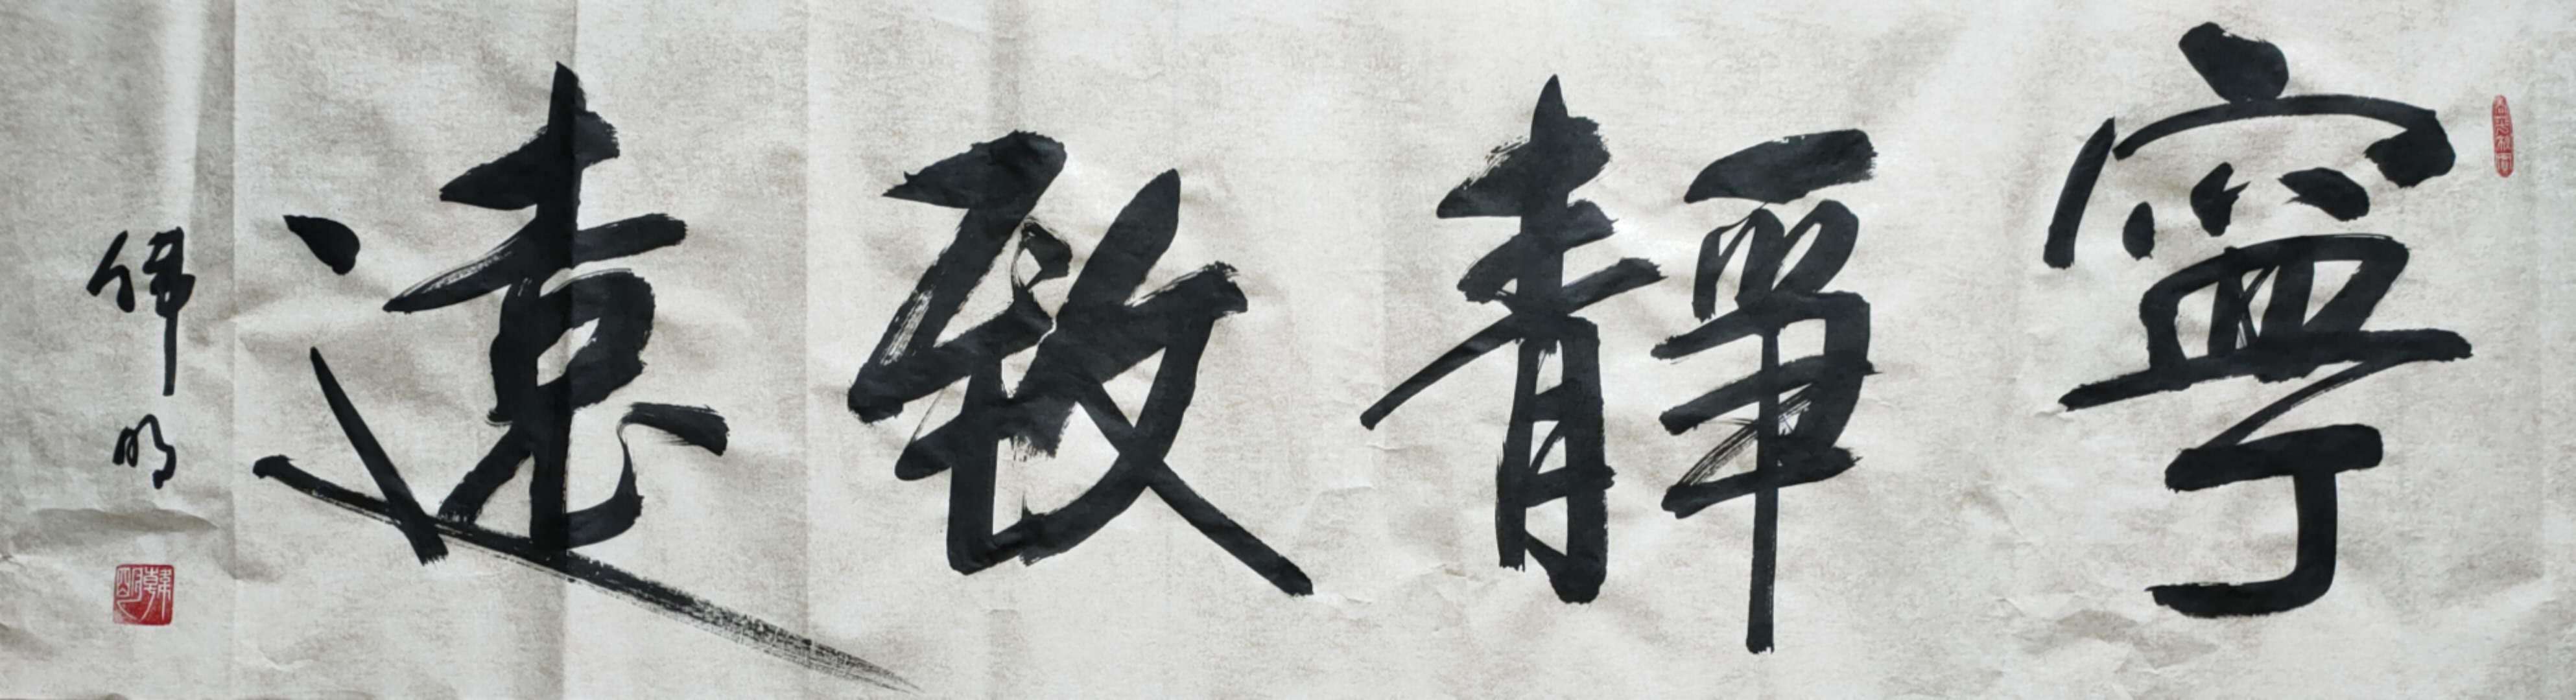 寧靜致遠
偉明